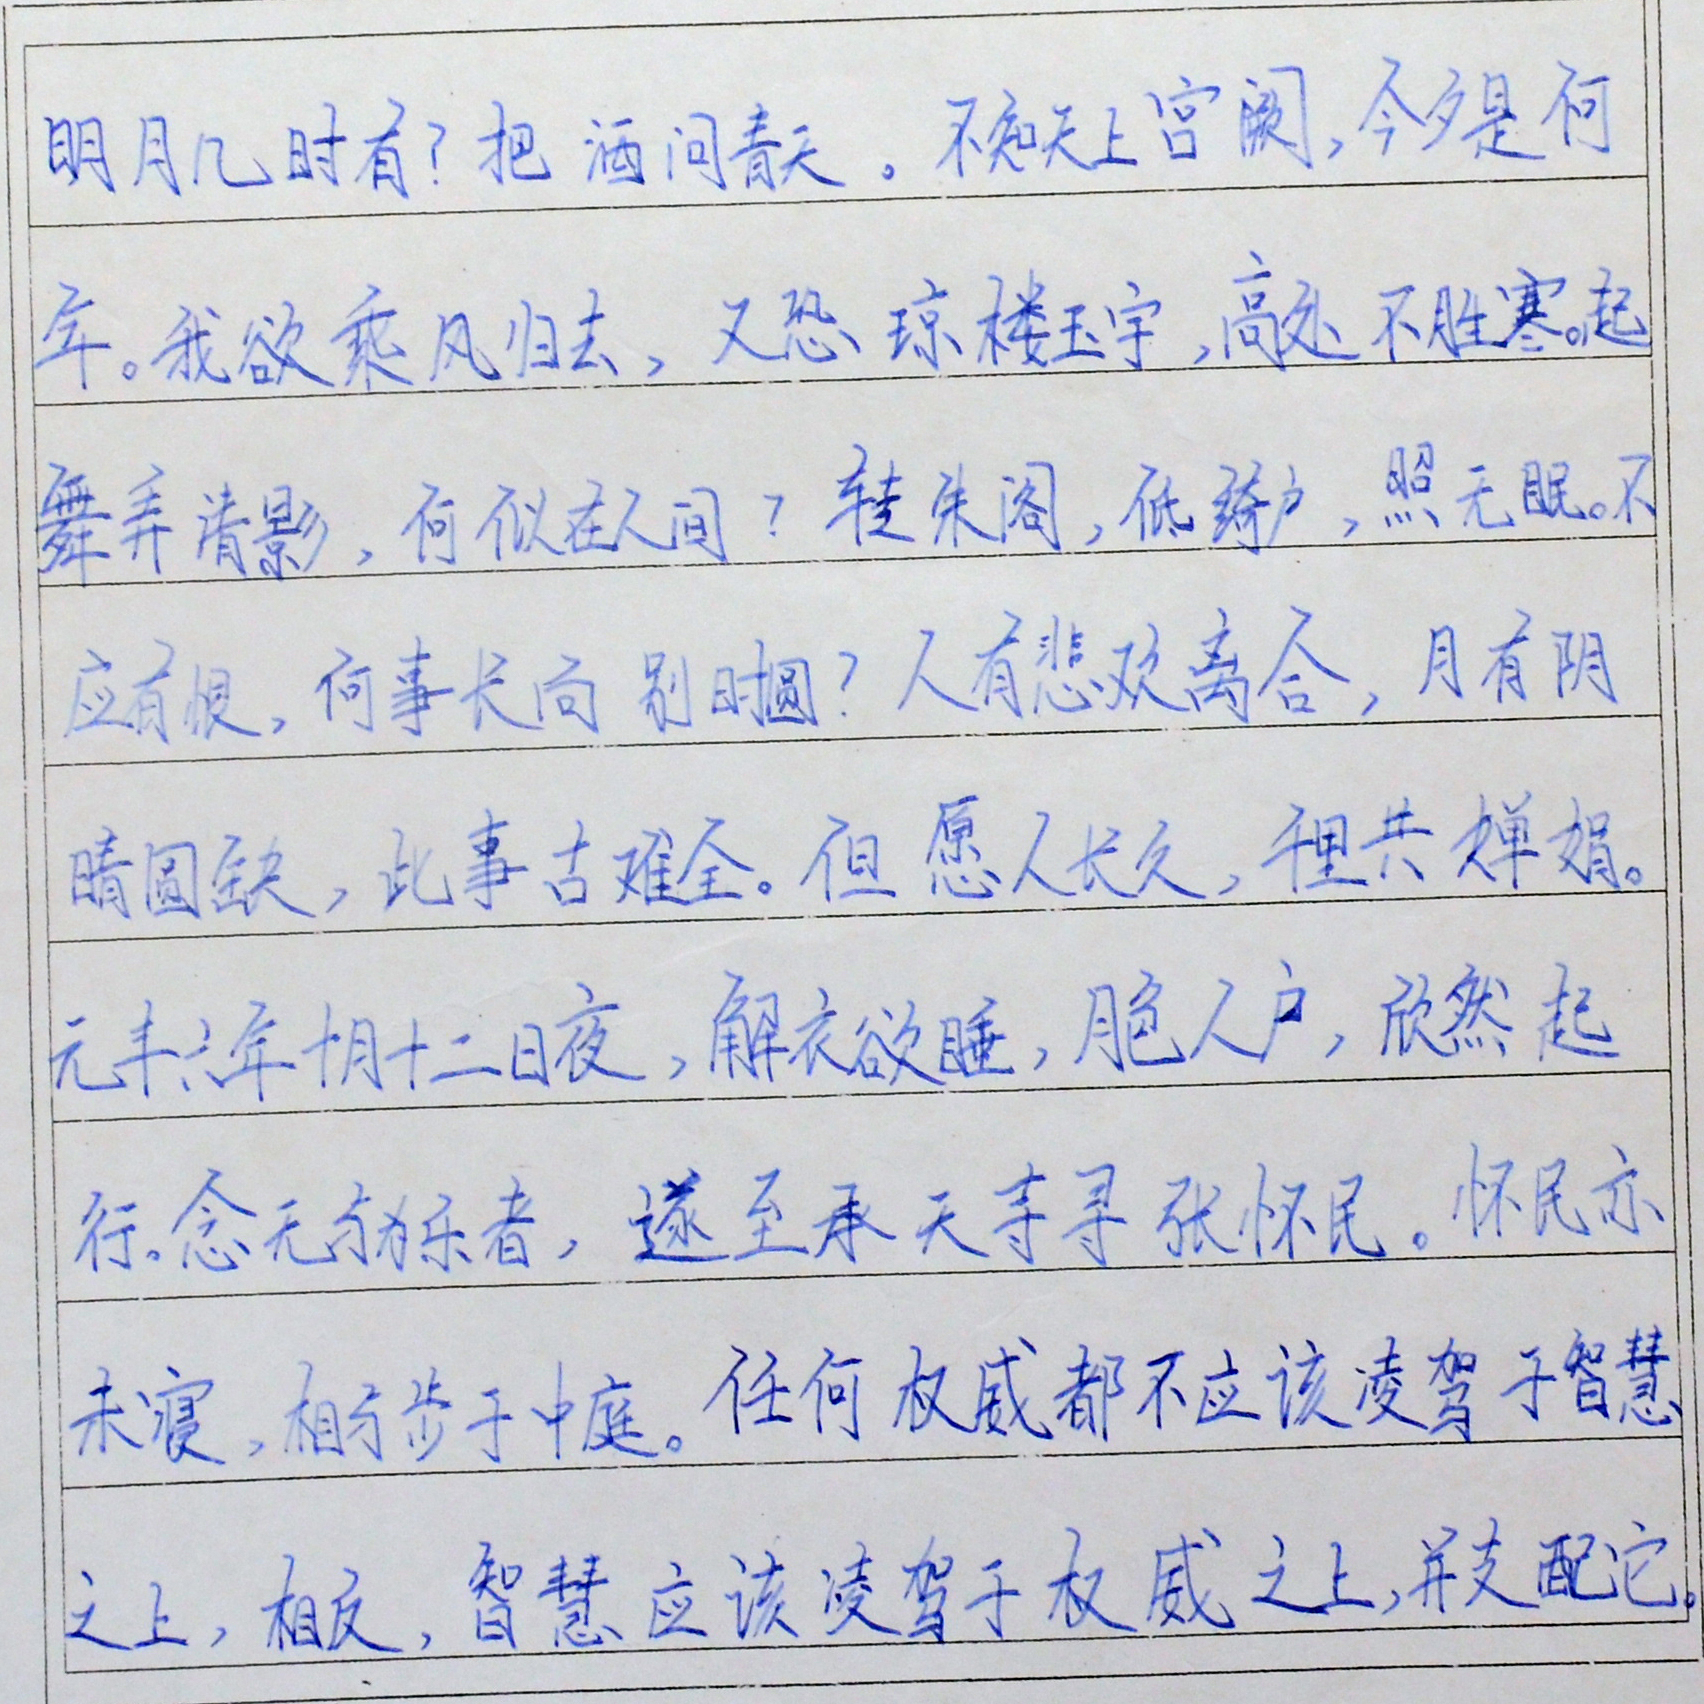 明月几时有?把酒问青天。不知天上宫阙,今夕是何
年。我欲乘风归去,又恐琼楼玉宇,高处不胜寒。起
舞弄清影,何似在人间?转朱阁,低绮户,照无眠。不
应有恨,何事长向别时圆?人有悲欢离合,月有阴
晴圆缺,此事古难全。但愿人长久,千里共婵娟。
元丰六年十月十二日夜,解衣欲睡,月色入户,欣然起
行。念无与为乐者,遂至承天寺寻张怀民。怀民亦
未寝,相与步于中庭。任何权威都不应该凌驾于智慧
之上,相反,智慧应该凌驾于权威之上,并支配它。